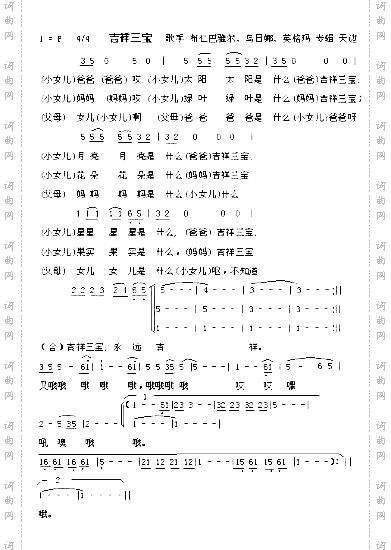 1 = F 4/4 吉祥三宝 歌手 布仁巴雅尔、乌日娜、英格玛 专辑 天边
3 5 6 5 0 | 5 5 5 5 3 2 | 3 2 0 0 0 |
(小女儿)爸爸 (爸爸) 哎 (小女儿)太 阳 太 阳是 什么(爸爸)吉祥三宝.
(小女儿)妈妈 (妈妈) 哎 (小女儿)绿 叶 绿 叶是 什么(妈妈)吉祥三宝.
(父母) 女儿(小女儿)啊 (父母) 爸 爸 爸 爸是 什么(小女儿)爸爸呀
5 5 5 5 5 3 2 | 3 2 0 0 0 |
(小女儿)月 亮 月 亮是 什么(爸爸)吉祥三宝.
(小女儿)花 朵 花 朵是 什么(妈妈)吉祥三宝.
(父母) 妈 妈 妈 妈是 什么(小女儿)什么
1 1 1 1 1 6 5 | 3 2 0 0 0 |
(小女儿)星星 星 星是 什么, (爸爸)吉祥三宝
(小女儿)果实 果 实是 什么, (妈妈)吉祥三宝
(父母) 女儿 女 儿是 什么(小女儿)呃,不知道
2 2 2 3 2 1 6 5 5 - - - | 4 - - - | 3 - - - | 3 - - - :||
5 - - - | 5 - - - | 1 - - - | 1 - - - :||
1 - - - | 1 - - - | 1 - - - | 1 - - - :||
(合)吉祥三宝, 永 远 吉 祥.
3 5 5 - 61 | 1 - - 61 | 5 5 35 5 | 5 - - - | 1 - - 61 | 5 - 6 5 |
2 - 5 35 | 2 - - - 1 - - 61 | 23 - - 3 | 32 23 32 23 | 5 - - - ||
1 - - - | 1 - - - :||
哦。
16 61 16 61 | 5 - - - | 21 12 21 12 | 1 - - - | 15 61 15 61 | 1 - - - ) :||
2
1 - - - | 1 - - - ||
哦。
词曲网